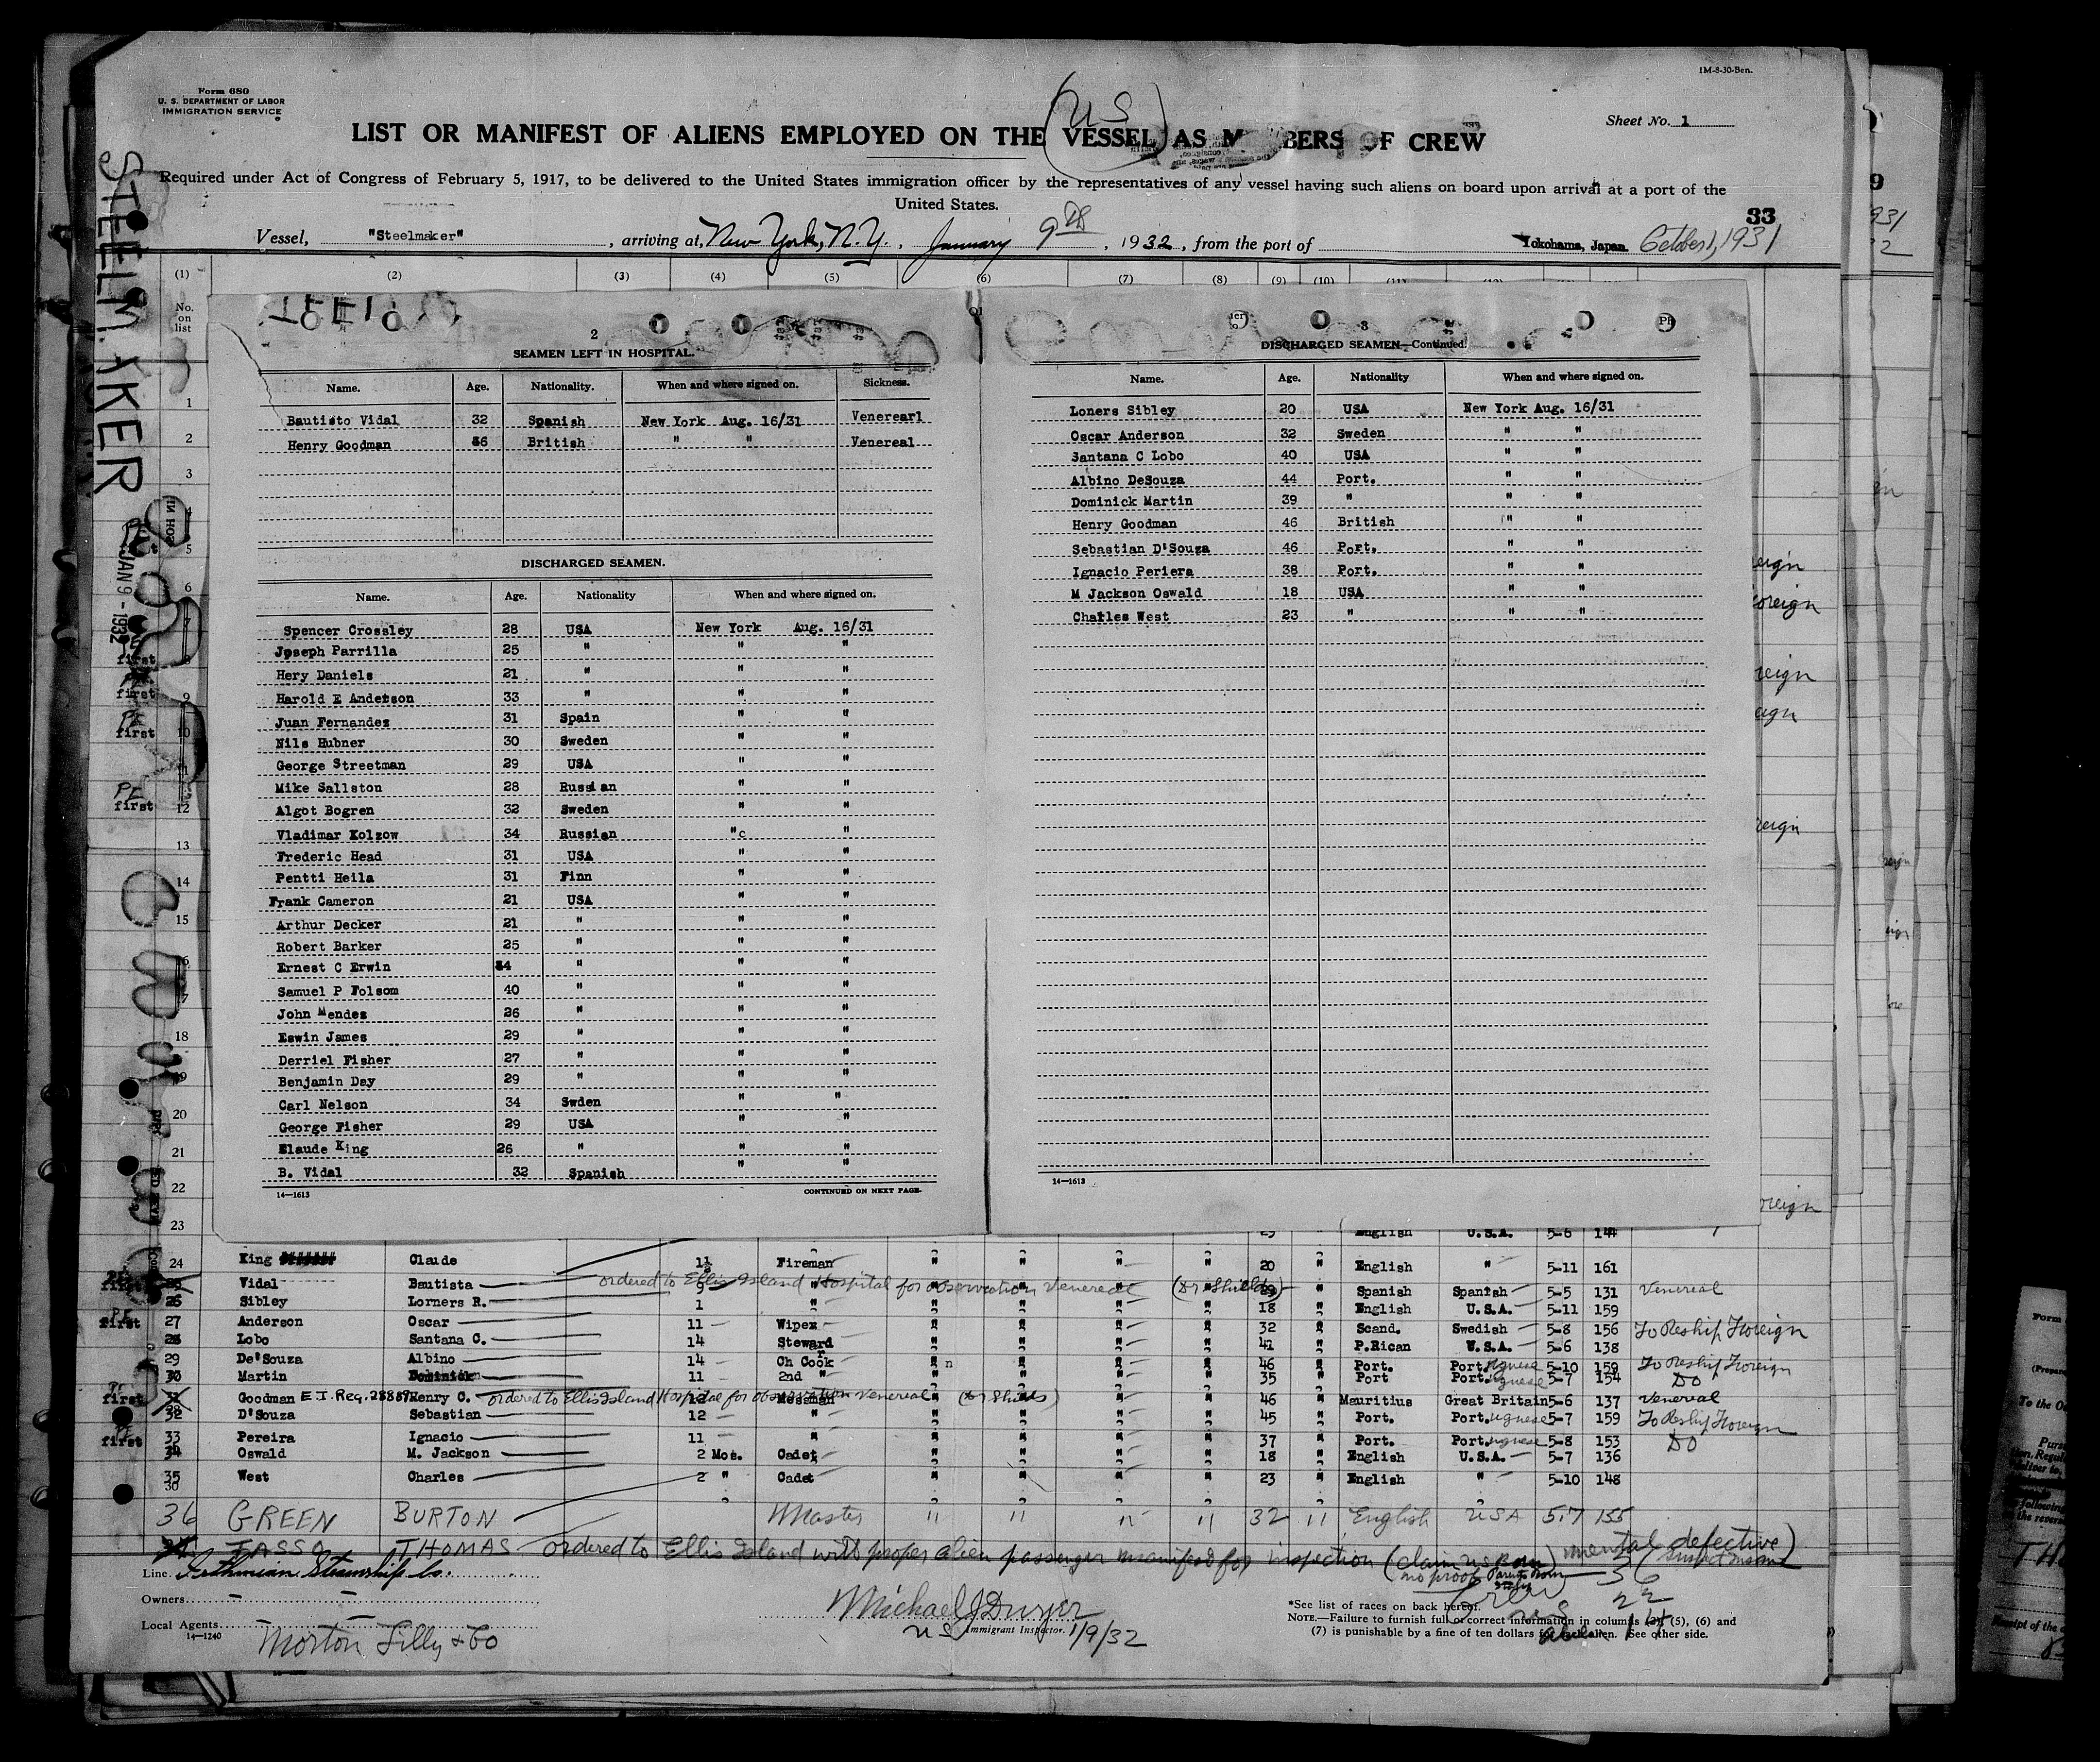 1M-8-30-Ben.
Form 680
U. S. DEPARTMENT OF LABOR
IMMIGRATION SERVICE
Sheet No. 1
(US)
LIST OR MANIFEST OF ALIENS EMPLOYED ON THE VESSEL AS M BERS OF CREW
Required under Act of Congress of February 5, 1917, to be delivered to the United States immigration officer by the representatives of any vessel having such aliens on board upon arrival at a port of the
United States.
33
Vessel, "Steelmaker", arriving at, New York, N.Y., January 9th, 1932, from the port of Yokohama, Japan October 1, 1931
STEELMAKER
JAN 9 - 1932
(1) (2) (3) (4) (5) (6) (7) (8) (9) (10)
No. on list
2
SEAMEN LEFT IN HOSPITAL.
Name. Age. Nationality. When and where signed on. Sickness.
Bautisto Vidal 32 Spanish New York Aug. 16/31 Venerearl
Henry Goodman 46 British " " Venereal
DISCHARGED SEAMEN.
Name. Age. Nationality When and where signed on.
Spencer Crossley 28 USA New York Aug. 16/31
Joseph Parrilla 25 " " "
Hery Daniels 21 " " "
Harold E Anderson 33 " " "
Juan Fernandez 31 Spain " "
Nils Hubner 30 Sweden " "
George Streetman 29 USA " "
Mike Sallston 28 Russian " "
Algot Bogren 32 Sweden " "
Vladimar Kolzow 34 Russian "c "
Frederic Head 31 USA " "
Pentti Heila 31 Finn " "
Frank Cameron 21 USA " "
Arthur Decker 21 " " "
Robert Barker 25 " " "
Ernest C Erwin 34 " " "
Samuel P Folsom 40 " " "
John Mendez 26 " " "
Eswin James 29 " " "
Derriel Fisher 27 " " "
Benjamin Day 29 " " "
Carl Nelson 34 Swden " "
George Fisher 29 USA " "
Elaude King 26 " " "
B. Vidal 32 Spanish " "
14—1613 CONTINUED ON NEXT PAGE.
3
DISCHARGED SEAMEN—Continued.
Name. Age. Nationality When and where signed on.
Loners Sibley 20 USA New York Aug. 16/31
Oscar Anderson 32 Sweden " "
Santana C Lobo 40 USA " "
Albino DeSouza 44 Port. " "
Dominick Martin 39 " " "
Henry Goodman 46 British " "
Sebastian D'Souza 46 Port. " "
Ignacio Periera 38 Port. " "
M Jackson Oswald 18 USA " "
Charles West 23 " " "
14—1613
English U.S.A. 5-6 144
24 King Claude 1½ Fireman " " " " 20 " English " 5-11 161
first Vidal Bautista 9 " ordered to Ellis Island (Hospital for observation Venereal (Dr Shields) Spanish Spanish 5-5 131 Venereal
26 Sibley Lorners R. 1 " " " " " 18 " English U.S.A. 5-11 159
first 27 Anderson Oscar 11 Wiper " " " " 32 " Scand. Swedish 5-8 156 To Reship Foreign
28 Lobo Santana C. 14 Steward " " " " 41 " P.Rican U.S.A. 5-6 138
29 De'Souza Albino 14 Ch Cook " n " " " 46 " Port. Portuguese 5-10 159 To Reship Foreign
30 Martin Dominick 11 2nd " " " " " 35 " Port Portuguese 5-7 154 DO
first 31 Goodman E.I. Reg. 28889 Henry C. 12 Messman ordered to Ellis Island Hospital for observation Venereal (Dr Shields) 46 " Mauritius Great Britain 5-6 137 Venereal
32 D'Souza Sebastian 12 " " " " " 45 " Port. Portuguese 5-7 159 To Reship Foreign
first 33 Pereira Ignacio 11 " " " " " 37 " Port. Portuguese 5-8 153 DO
34 Oswald M. Jackson 2 Mos. Cadet " " " " 18 " English U.S.A. 5-7 136
35 West Charles 2 " Cadet " " " " 23 " English " 5-10 148
30
36 GREEN BURTON Master " " " " 32 " English USA 5.7 155
TASSO THOMAS ordered to Ellis Island with proper alien passenger manifest for inspection (claim US Born no proof Parents Born) mental defective)
Line Isthmian Steamship Co.
Owners
Local Agents Morton Lilly & Co
14—1240
Michael J Dwyer
US Immigrant Inspector. 1/9/32
Crew 36
US 22
alien 14
*See list of races on back hereof.
NOTE.—Failure to furnish full or correct information in columns (2), (5), (6) and
(7) is punishable by a fine of ten dollars for each alien. See other side.